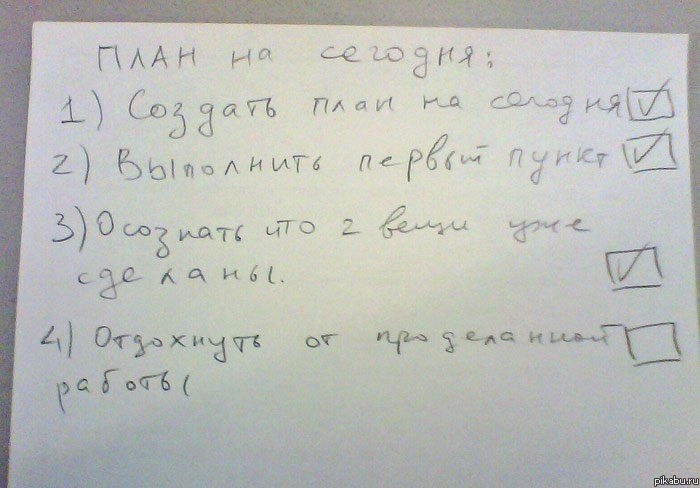 ПЛАН на сегодня:
1) Создать план на сегодня
2) Выполнить первый пункт
3) Осознать что 2 вещи уже
сделаны.
4) Отдохнуть от проделанной
работы
pikabu.ru